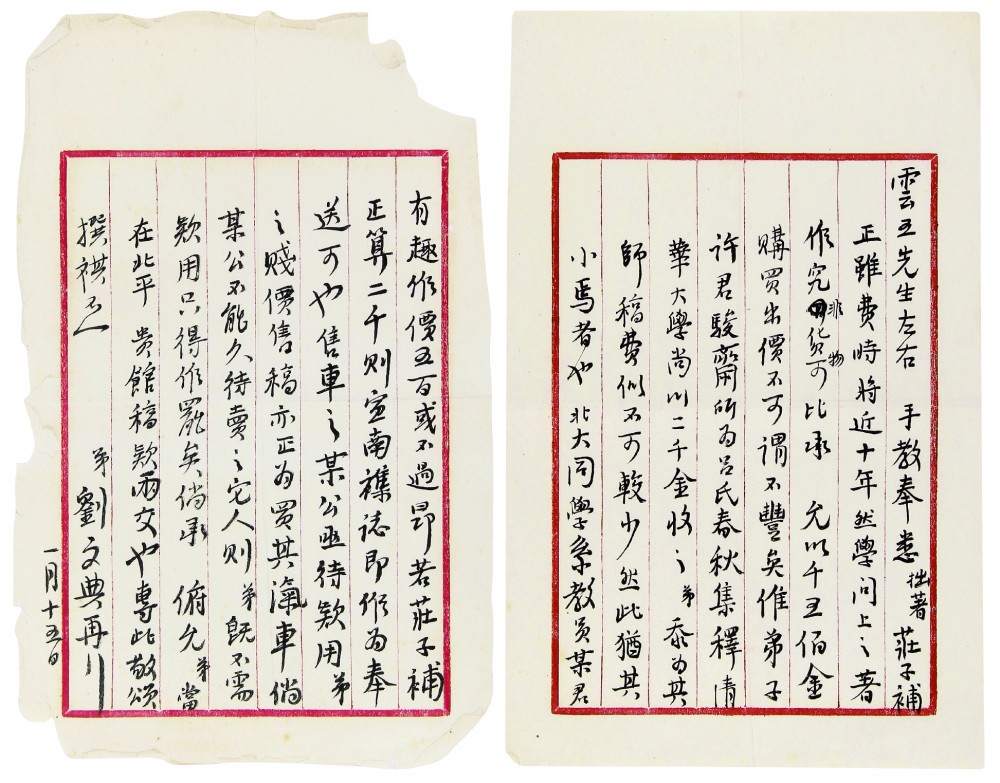 雲五先生左右 手教奉悉拙著莊子補
正雖費時將近十年然學問上之著
作究非貨物可比承 允以千五佰金
購買出價不可謂不豐矣惟弟子
許君駿齋所為呂氏春秋集釋清
華大學尚以二千金收之弟忝為其
師稿費似不可較少然此猶其
小焉者也北大同學系教員某君
有趣作價五百或不過昂若莊子補
正算二千則宣南襍誌即作為奉
送可也售車之某公亟待款用弟
之賤價售稿亦正為買其汽車倘
某公不能久待賣之它人則弟既不需
款用只得作罷矣倘承 俯允弟當
在北平 貴館稿款兩交也專此敬頌
撰祺不一
弟劉文典再行
一月十五日